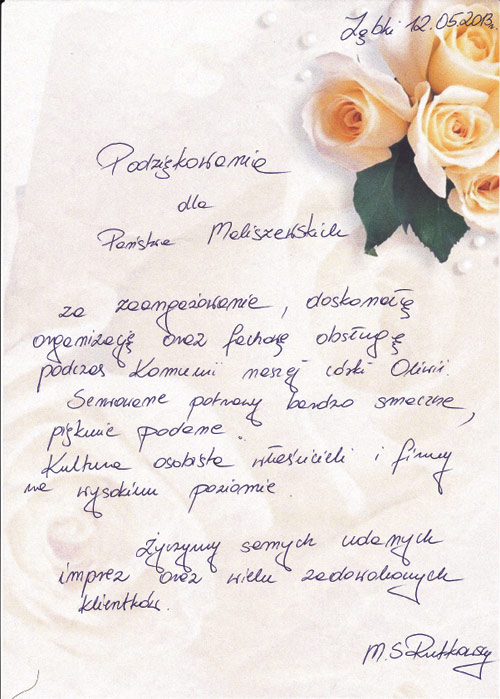 Ząbki 12.05.2013r.
Podziękowanie
dla
Państwa Maliszewskich
za zaangażowanie, doskonałą
organizację oraz fachową obsługę
podczas Komunii naszej córki Oliwii.
Serwowane potrawy bardzo smaczne,
pięknie podane.
Kultura osobista właścicieli i firmy
na wysokim poziomie.
Życzymy samych udanych
imprez oraz wielu zadowolonych
klientów.
M.S Rutkowscy